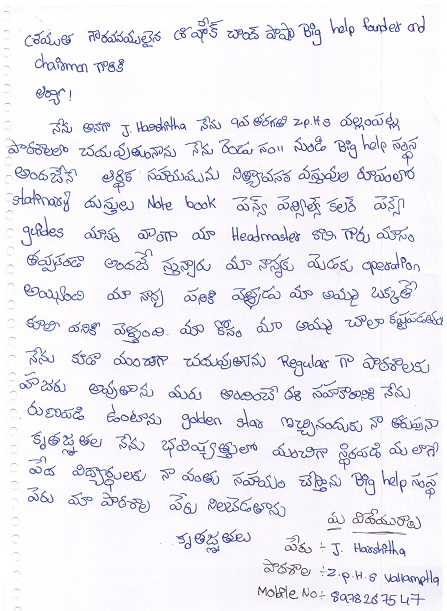 శ్రీయుత గౌరవనీయులైన శ్రీ షేక్ చాంద్ పాషా Big help founder and
chairman గారికి
ఆర్యా!
నేను అనగా J. Harshitha నేను 9వ తరగతి Z.P.H.S వల్లంపట్ల
పాఠశాలలో చదువుతున్నాను నేను రెండు సం॥ నుండి Big help సంస్థ
అందచేసే ఆర్థిక సహాయమును నిత్యావసర వస్తువుల రూపంలో
stationary దుస్తులు Note book పెన్స్ పెన్సిల్స్ కలర్ పెన్స్
guides మాకు మా Headmaster గారు మాకు
తప్పకుండా అందచేస్తున్నారు మా నాన్నకు మెడకు operation
అయ్యింది మా నాన్న పనికి వెళ్ళడు మా అమ్మ ఒక్కతే
కూలీ పనికి వెళ్తుంది. మా కోసం మా అమ్మ చాలా కష్టపడుతుంది
నేను కూడా మంచిగా చదువుతాను Regular గా పాఠశాలకు
హాజరు అవుతాను మీరు అందించే ఈ సహకారానికి నేను
రుణపడి ఉంటాను golden star ఇచ్చినందుకు నా తరుపున
కృతజ్ఞతలు నేను భవిష్యత్తులో మంచిగా స్థిరపడి మీలాగే
పేద విద్యార్థులకు నా వంతు సహాయం చేస్తాను Big help సంస్థ
పేరు మా పాఠశాల పేరు నిలబెడతాను
కృతజ్ఞతలు
మీ విధేయురాలు
పేరు :- J. Harshitha
పాఠశాల :- Z.P.H.S Vallampatla
Mobile No:- 8978267547